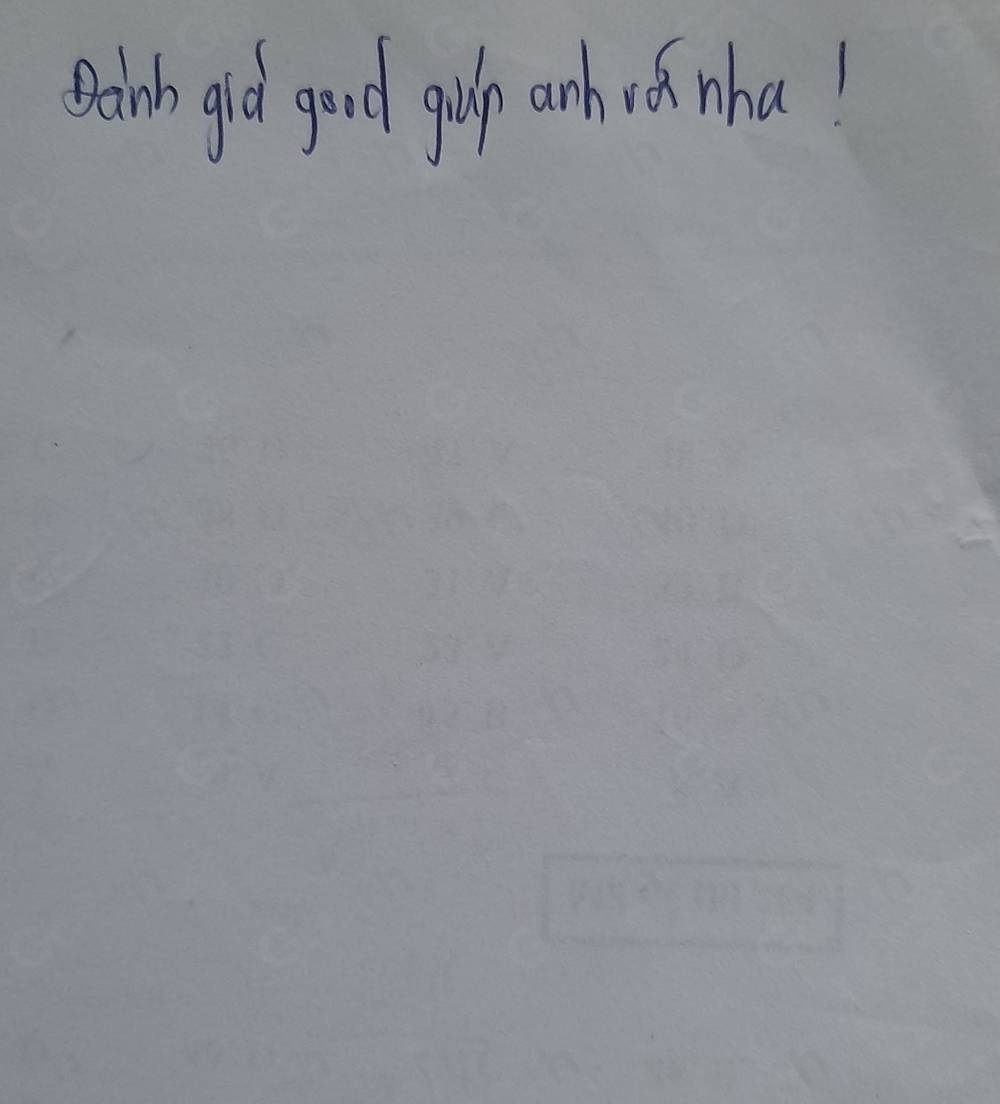 Đánh giá good giúp anh với nha !